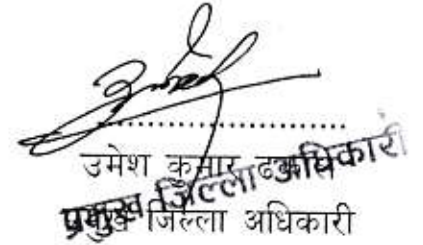 उमेश कुमार ढकाल
प्रमुख जिल्ला अधिकारी
प्रमुख जिल्ला अधिकारी